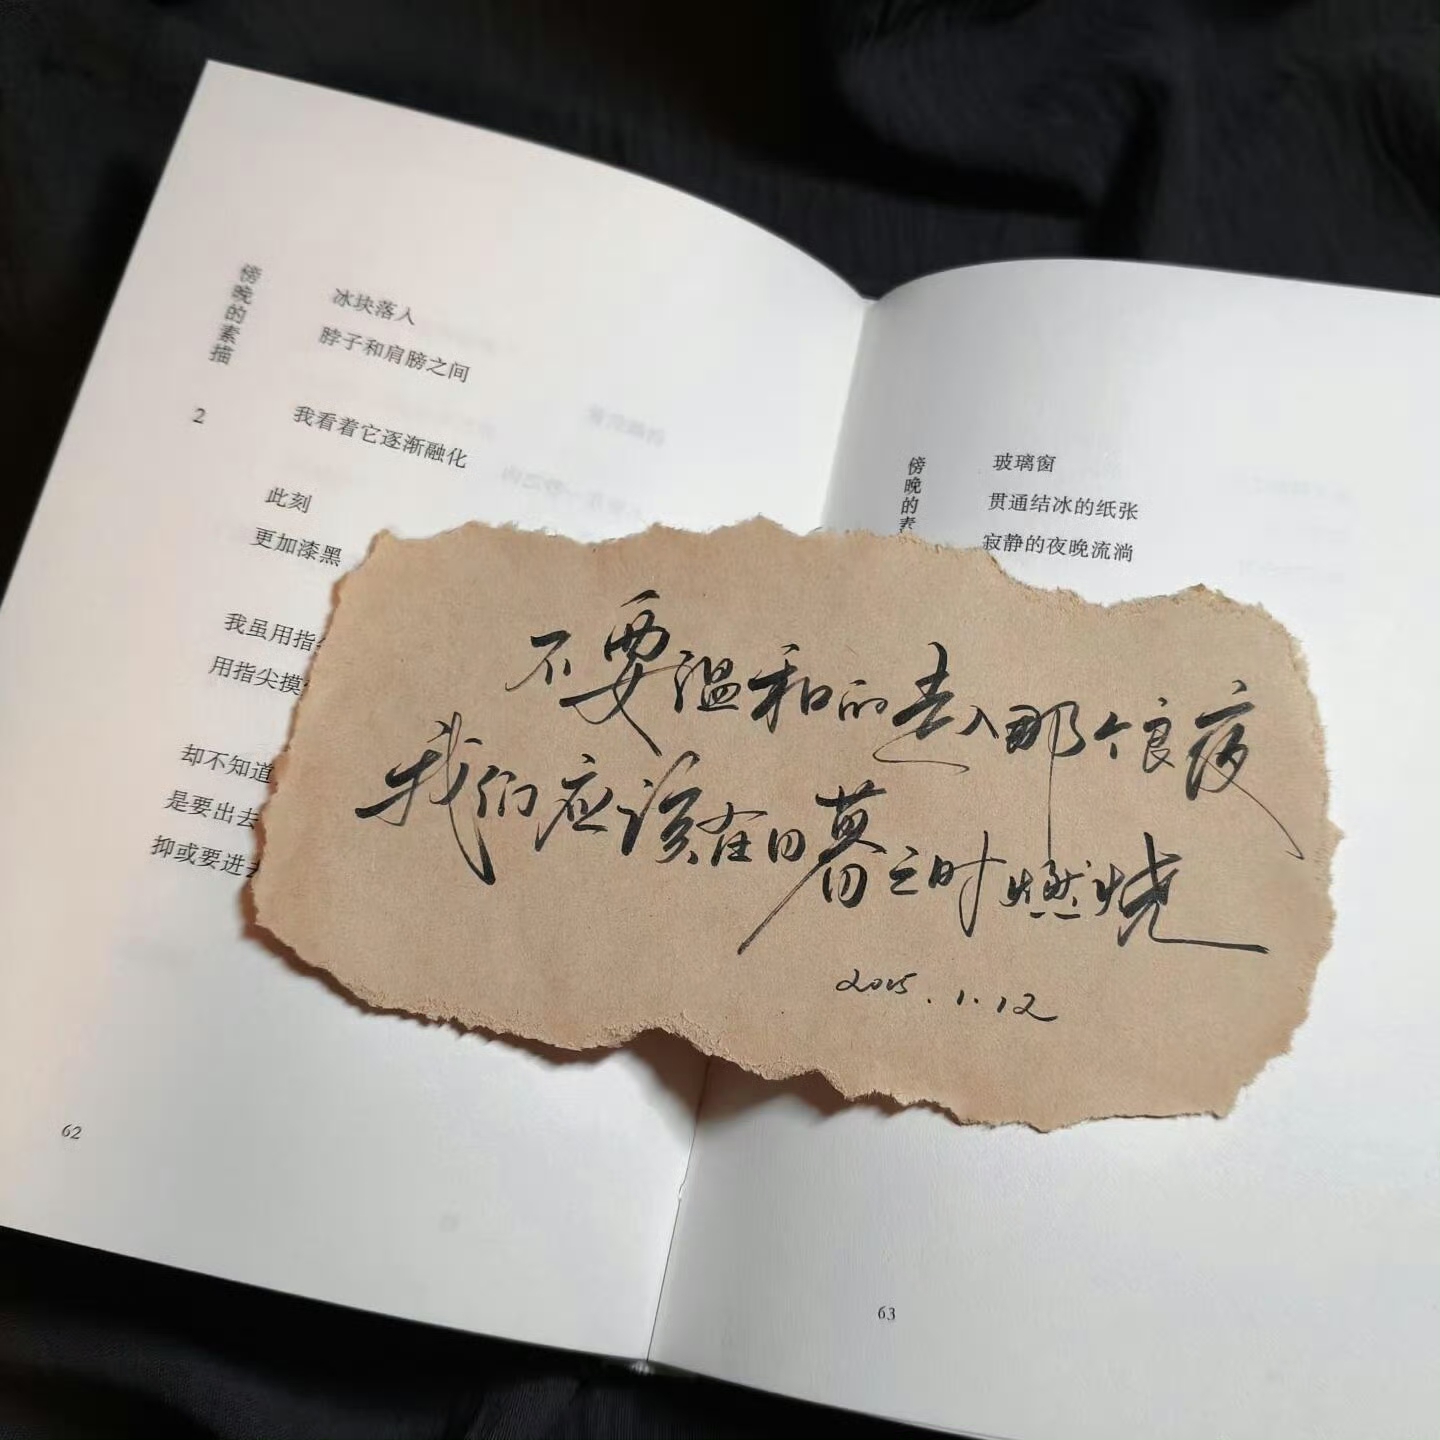 傍晚的素描
2
冰块落入
脖子和肩膀之间
我看着它逐渐融化
此刻
更加漆黑
我虽用指
用指尖摸
却不知道
是要出去
抑或要进去
62
傍晚的素
玻璃窗
贯通结冰的纸张
寂静的夜晚流淌
63
不要温和的走入那个良夜
我们应该在日暮之时燃烧
2025.1.12